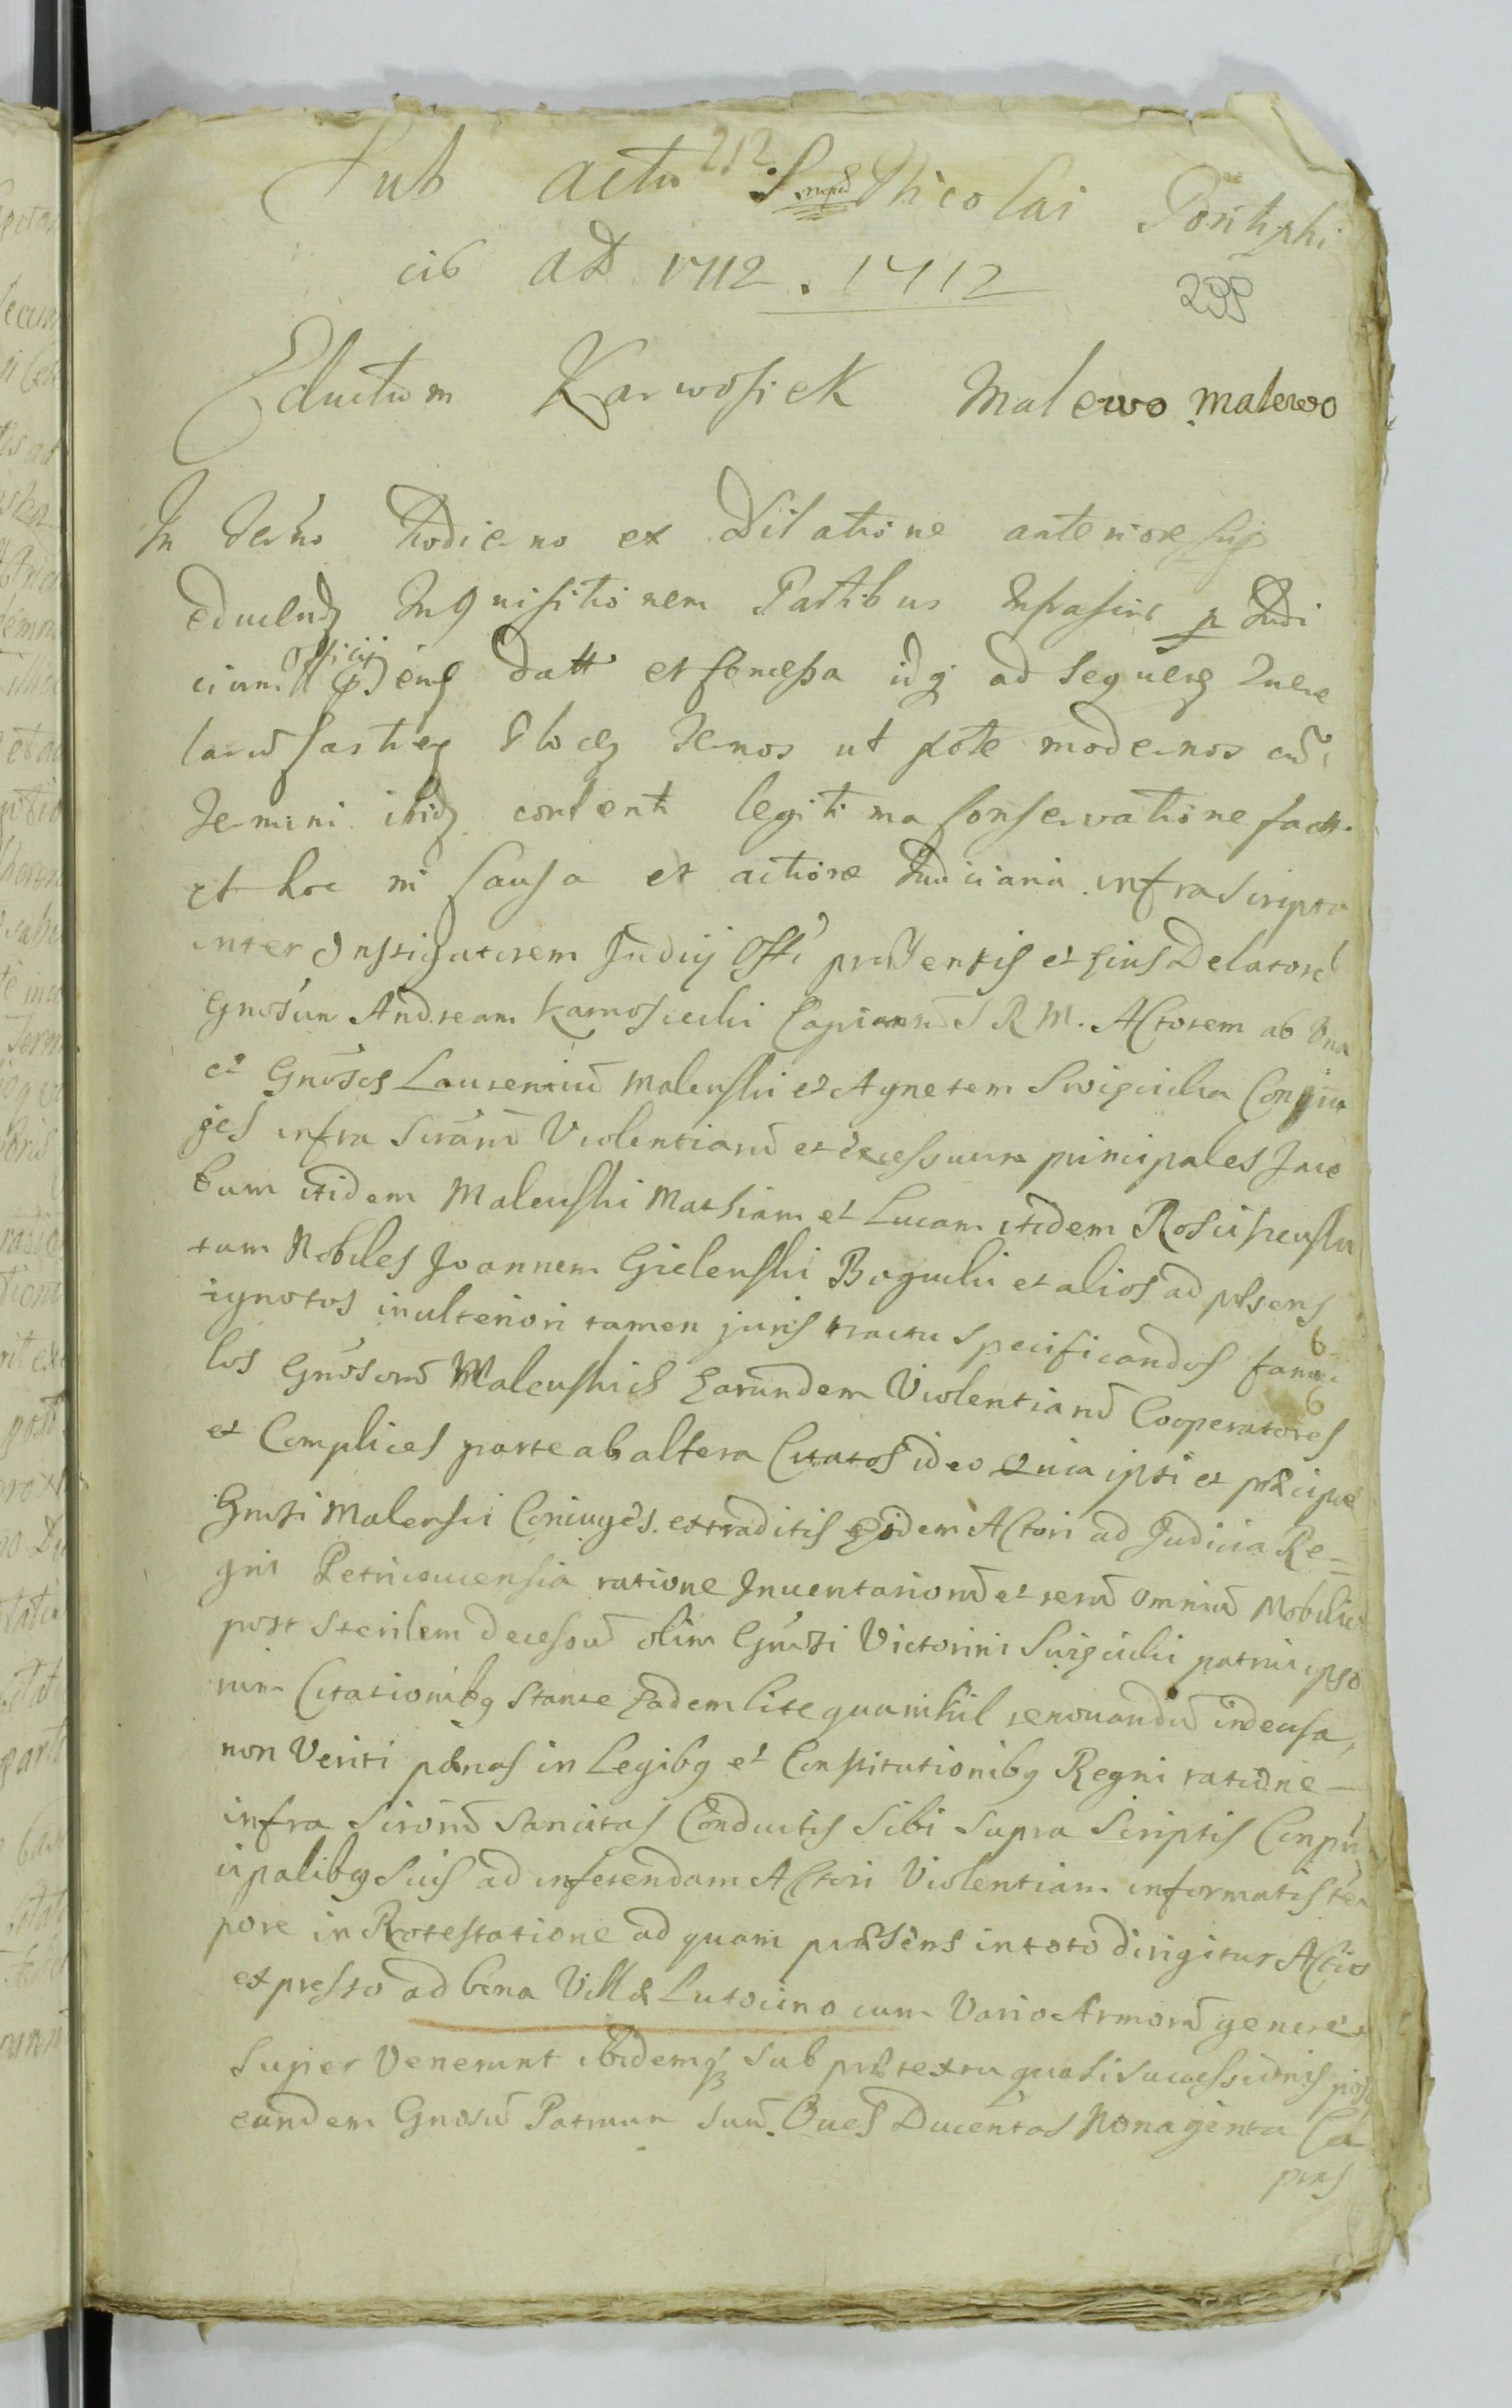 212
Sub actu S. Nicolai Pontiphi
cis AD 1712 . 1712
299
Eductum Karwosiek Malewo Malewo
In Termo hodierno ex Dilatione anteriore
Inquisitionem Partibus p Judi
cium Officij datt et ad
Termos ut pote modernos
Termini ibidz content legitima Conservatione fact
et hoc in Causa et actione Judiciaria infrascripta
inter Instigatorem Judicij Offi præsentis et Ejus Delatorē
Gnosum Andream Karnosiecki S R M. Actorem ab Una
et Gnosos Laurentiū Malenski et Agnetem Conju
ges infra Violentiarū et Excessuum principales Jaco
bum itidem Malenski Mathiam et Lucam itidem
tum Nobiles Joannem Gielenski et alios ad præsens
ignotos in ulteriori tamen juris tractu specificandos famu
los Gnosorū Malenskich Earundem Violentiarū Cooperatores
et Complices parte ab altera Citatos ideo Quia ipsi et præcipue
Gnosi Malensci Coniuges extraditis Eidem Actori ad Judicia Re=
gni Petricouiensia ratione Inuentariorū et rerū omniū Mobiliū
post sterilem decessū olim Gnosi Victorini patrui ipso
rum Citationibq stante Eadem lite qua nihil renouandū
non Veriti pænas in Legibq et Constitutionibq Regni ratione
infra sancitas Conductis sibi supra scriptis Conprin
cipalibq suis ad inferendam Actori Violentiam informatis tem
pore in Protestatione ad quam præsens in toto dirigitur Actio
expresso ad bona Villæ Lutocino cum Vario Armorū genere
Super Venerunt ibidemq sub prætextu quasi successionis post
eundem Gnosū Patruum suū Oues Ducentas Nonaginta Ca